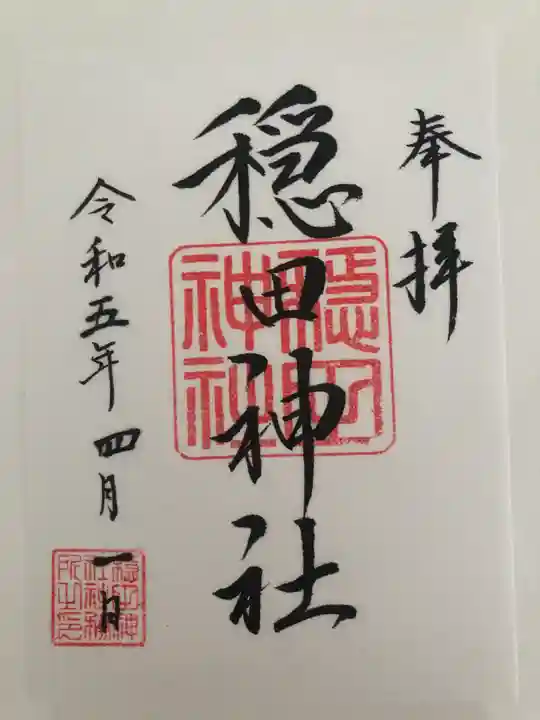 奉拝
穏田神社
穏田神社
令和五年 四月 一日
穏田神社社務所之印